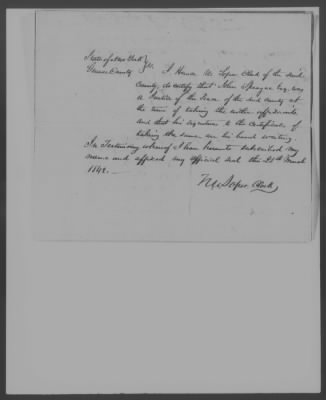 State of New York } ss.
Genesee County I Horace M. Soper Clerk of the said
County, do certify that John Sprague Esq. was
a Justice of the Peace of the said county at
the time of taking the within affidavits
and that his signature to the certificate of
taking the same, are his hand writing
In Testimony whereof I have hereunto subscribed my
name and affixed my official seal this 21st March
1842.
H M Soper Clerk